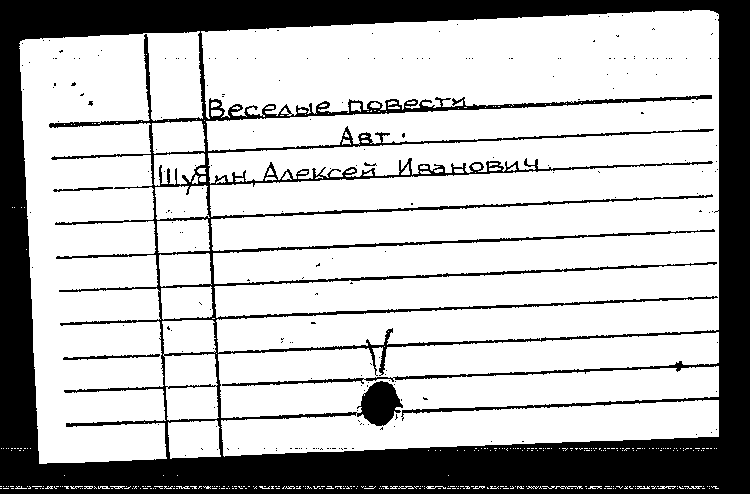 Веселые повести
Авт.:
Шубин, Алексей Иванович.